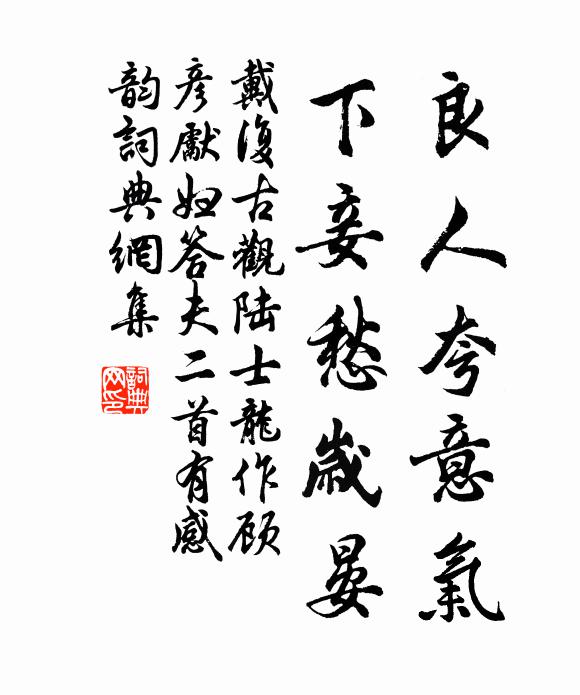 良人夸意氣
下妾愁歲晏
戴復古觀陆士龍作顾
彦獻妇答夫二首有感
韵詞典網集
詞典
网印